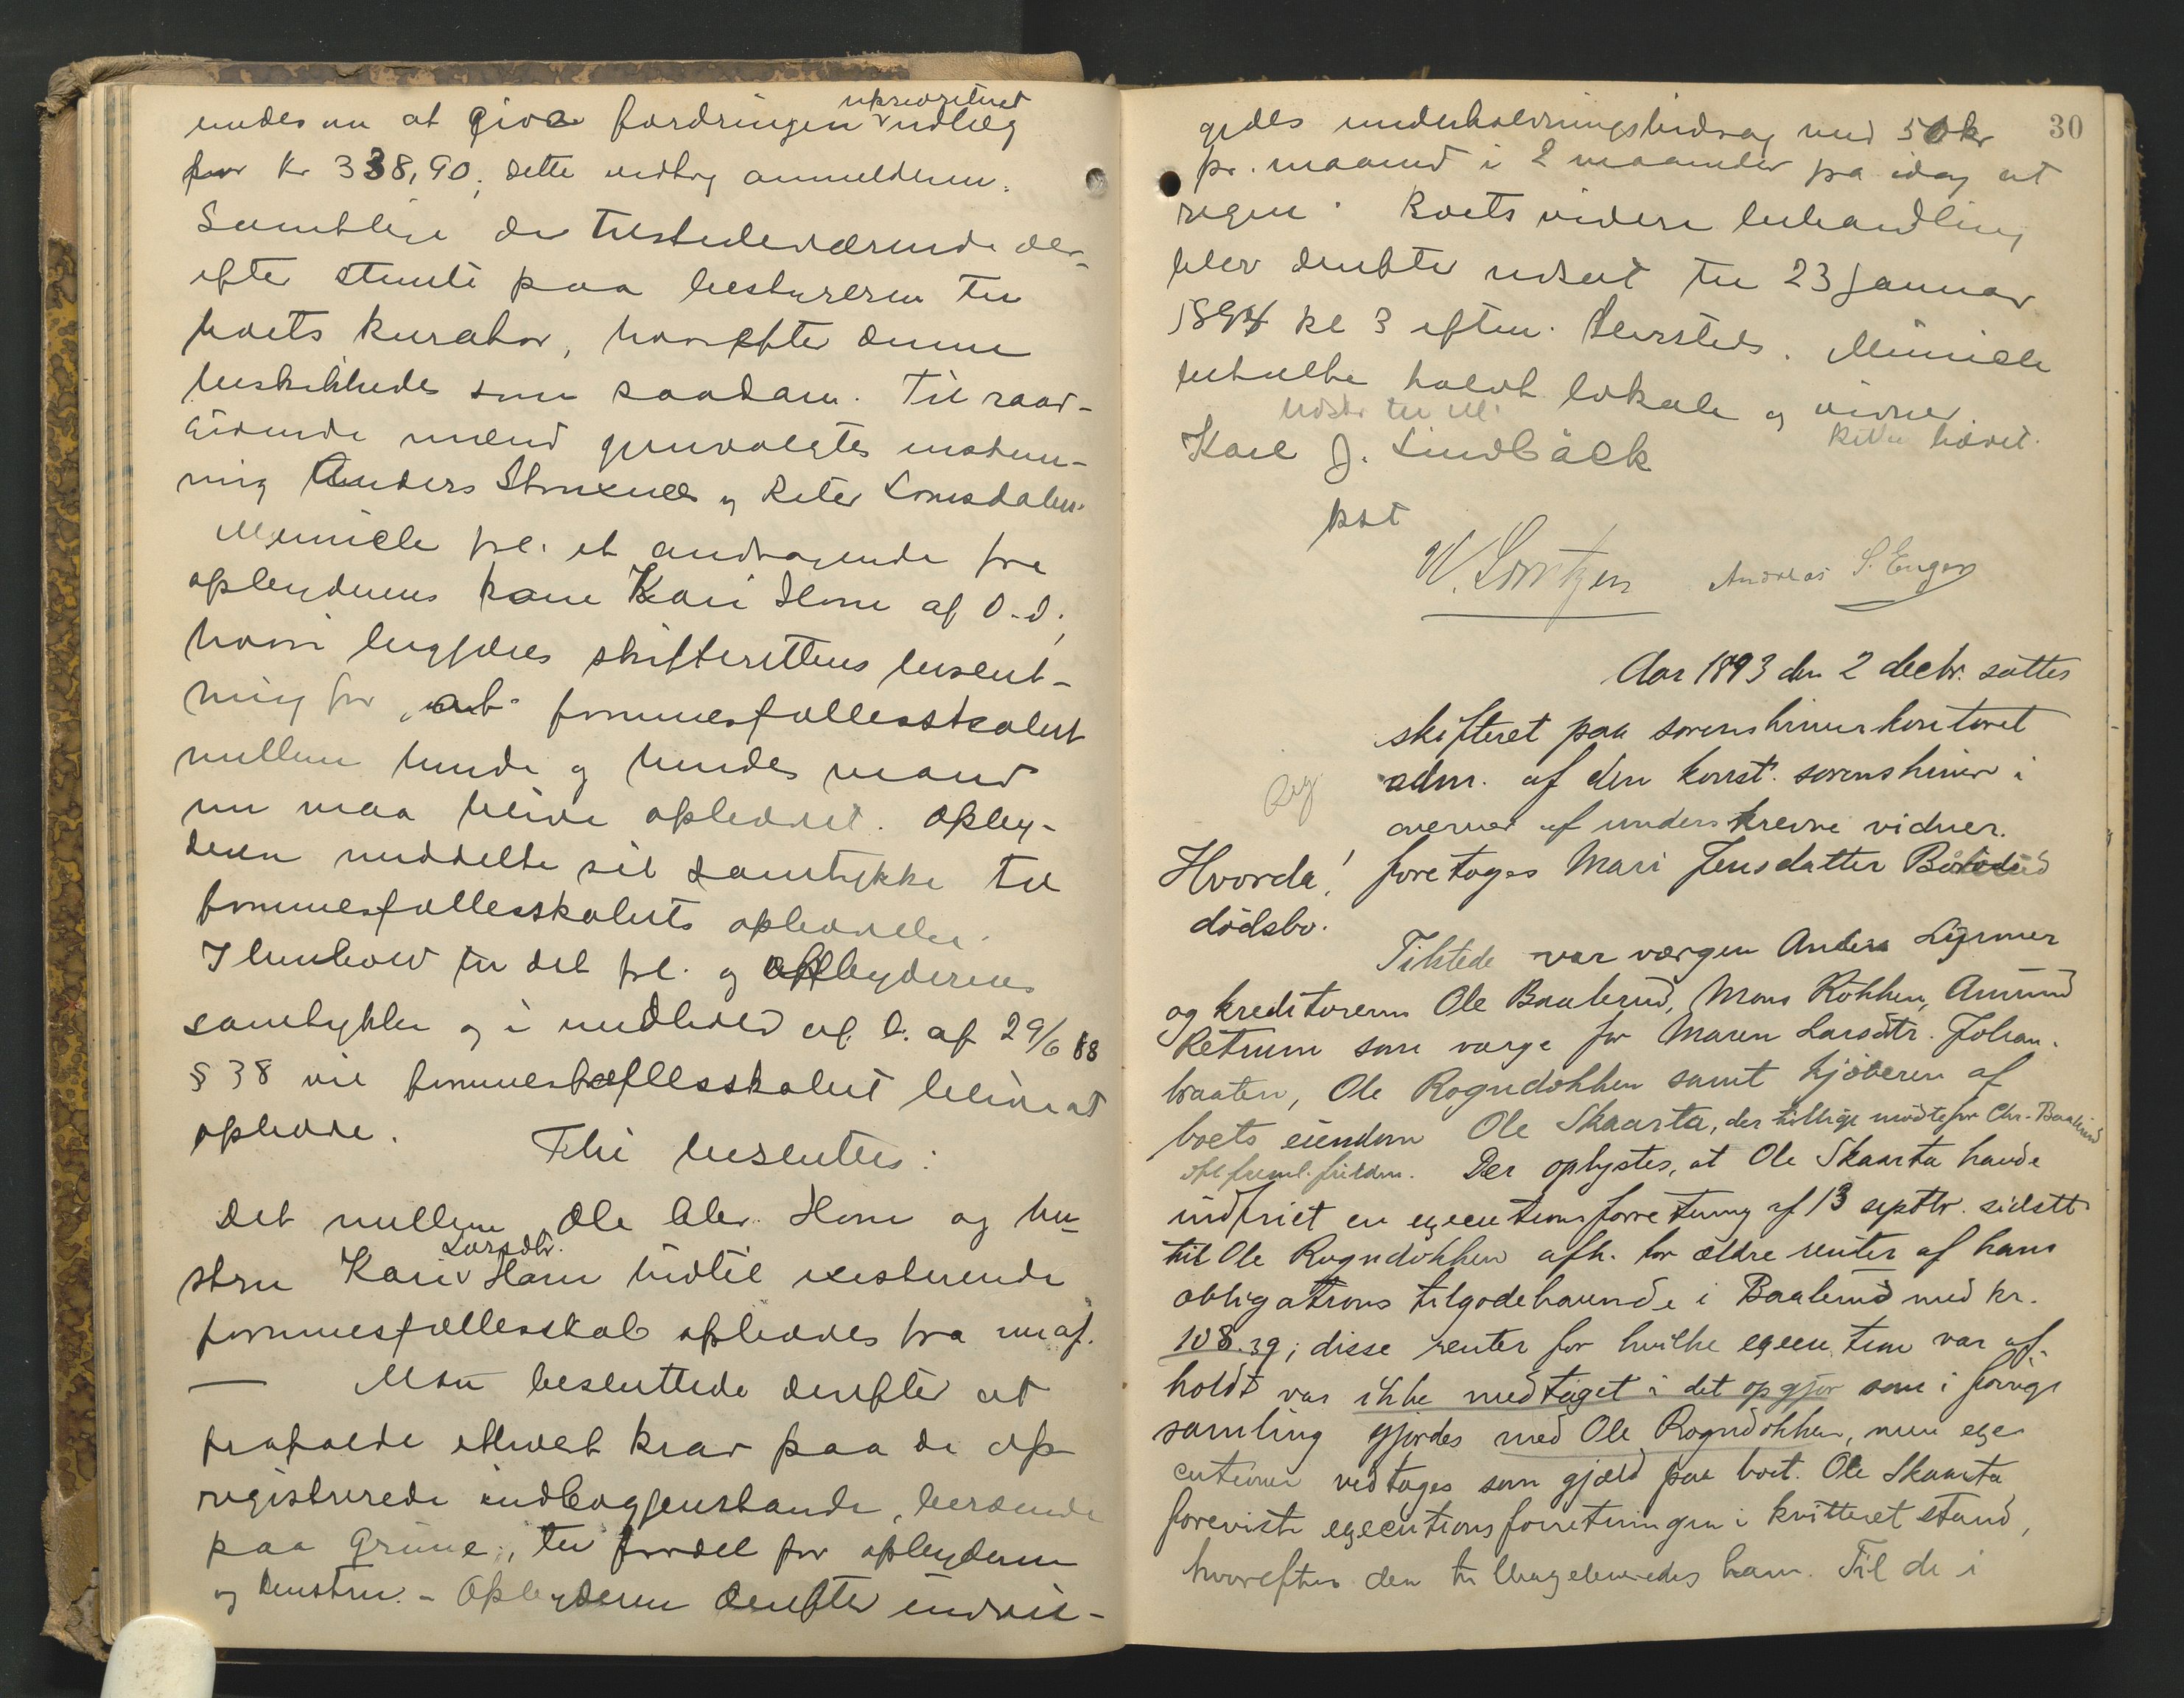 uprioriteret
endes nu at give fordringen udlæg
for kr 338,90; dette vedtog anmelderen.
Samtlige de tilstedeværende der-
efter stemte paa bestyreren til
boets kurator, hvorefter denne
beskikkedes som saadan. Til raad-
givende mænd gjenvalgtes enstem-
mig Anders Stenxnes og Peter Lomsdalen.
Münicke frl. et andragende fra
opbyderens kone Kari Horn af D.D.,
hvori begjæres skifterettens beslut-
ning for, at formuesfællesskabet
mellem hende og hendes mand
nu maa blive ophævet. Opby-
deren meddelte sit samtykke til
formuesfællesskabets ophævelse.
I henhold til det frl. og opbyderens
samtykke og i medhold af l. af 29/6 88
§ 38 vil formuesfællesskabet blive at
ophæve.
Thi besluttes:
Det mellem Ole Olsv. Horn og hu-
Larsdtr.
stru Kari Horn hidtil existerende
formuesfællesskab ophæves fra nu af.
Man besluttede derefter at
frafalde ethvert krav paa de op-
registrerede indbogjenstande, beroende
paa Grüne, til fordel for opbyderen
og hustru. - Opbyderen derefter indvil-
30
gedes underholdningsbidrag med 50 kr
pr. maaned i 2 maaneder fra idag at
regne. Boets videre behandling
blev derefter udsat til 23 januar
1894 kl 3 efterm. hersteds. Münicke
beholdt lokale og vidner.
Udskr til M.
Retten hævet.
Karl J. Lindbäck
kst
W. Lorntzen Andreas S. Enger
Aar 1893 den 2 decbr. sattes
skifteret paa sorenskriverkontoret
adm. af den konst. sorenskriver i
overvær af underskrevne vidner.
Hvorda! foretoges Mari Jensdatter Bålerud
dödsbo.
Tilstede var værgen Anders
og kreditorerne Ole Baalerud, Mons Kokken, Amund
Retrum som værge for Maren Larsdtr. Johan-
braaten, Ole Rogndokken samt kjöberen af
boets eiendom Ole Skaarta, der tillige mödte for Chr. Baalerud
Der oplystes, at Ole Skaarta havde
indfriet en executionsforretning af 13 septbr. sidstl.
til Ole Rogndokken afh. for ældre renter af hans
obligations tilgodehavende i Baalerud med kr.
108.39; disse renter for hvilke execution var af-
holdt var ikke medtaget i det opgjör som i forrige
samling gjordes med Ole Rogndokken, men exe-
cutionen vedtages som gjæld paa boet. Ole Skaarta
foreviste executionsforretningen i kvitteret stand,
hvorefter den tilbageleveredes ham. Til de i